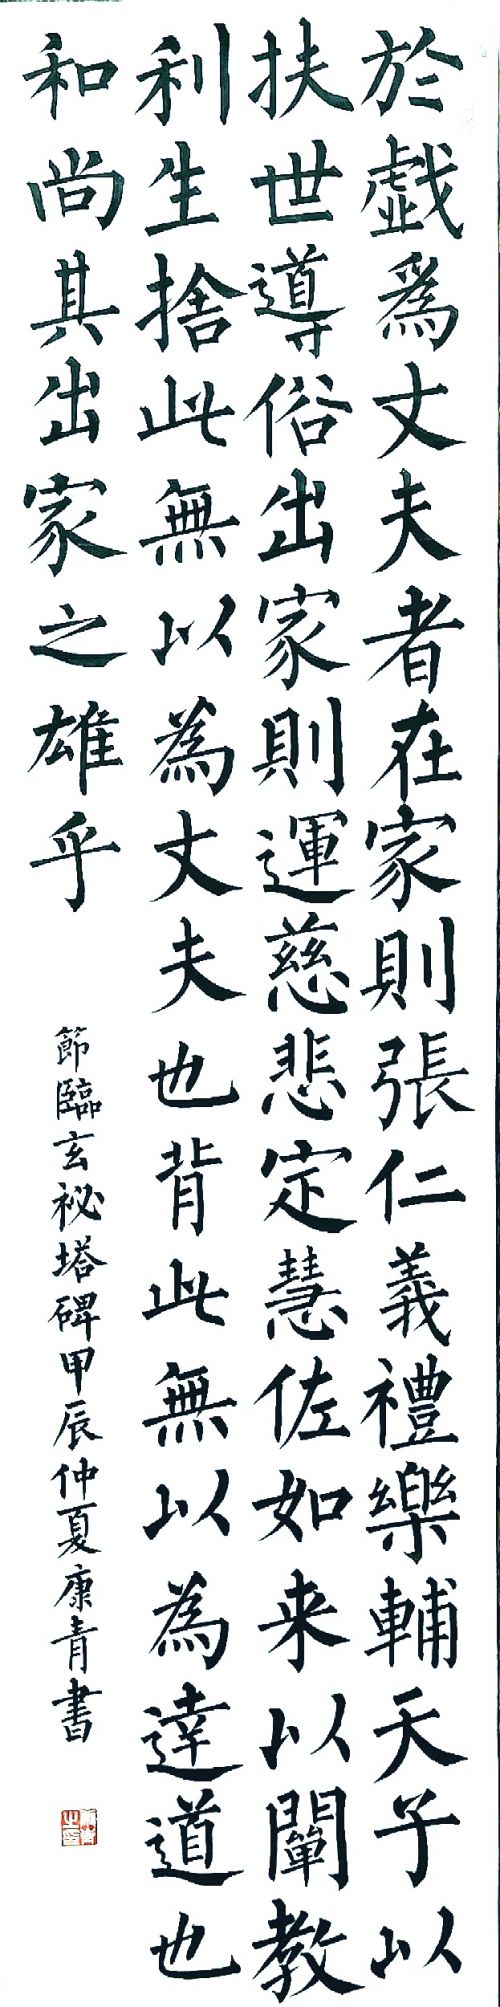 於戯爲丈夫者在家則張仁義禮樂輔天子以
扶世導俗出家則運慈悲定慧佐如来以闡教
利生捨此無以為丈夫也背此無以為達道也
和尚其出家之雄乎
節臨玄祕塔碑甲辰仲夏康青書